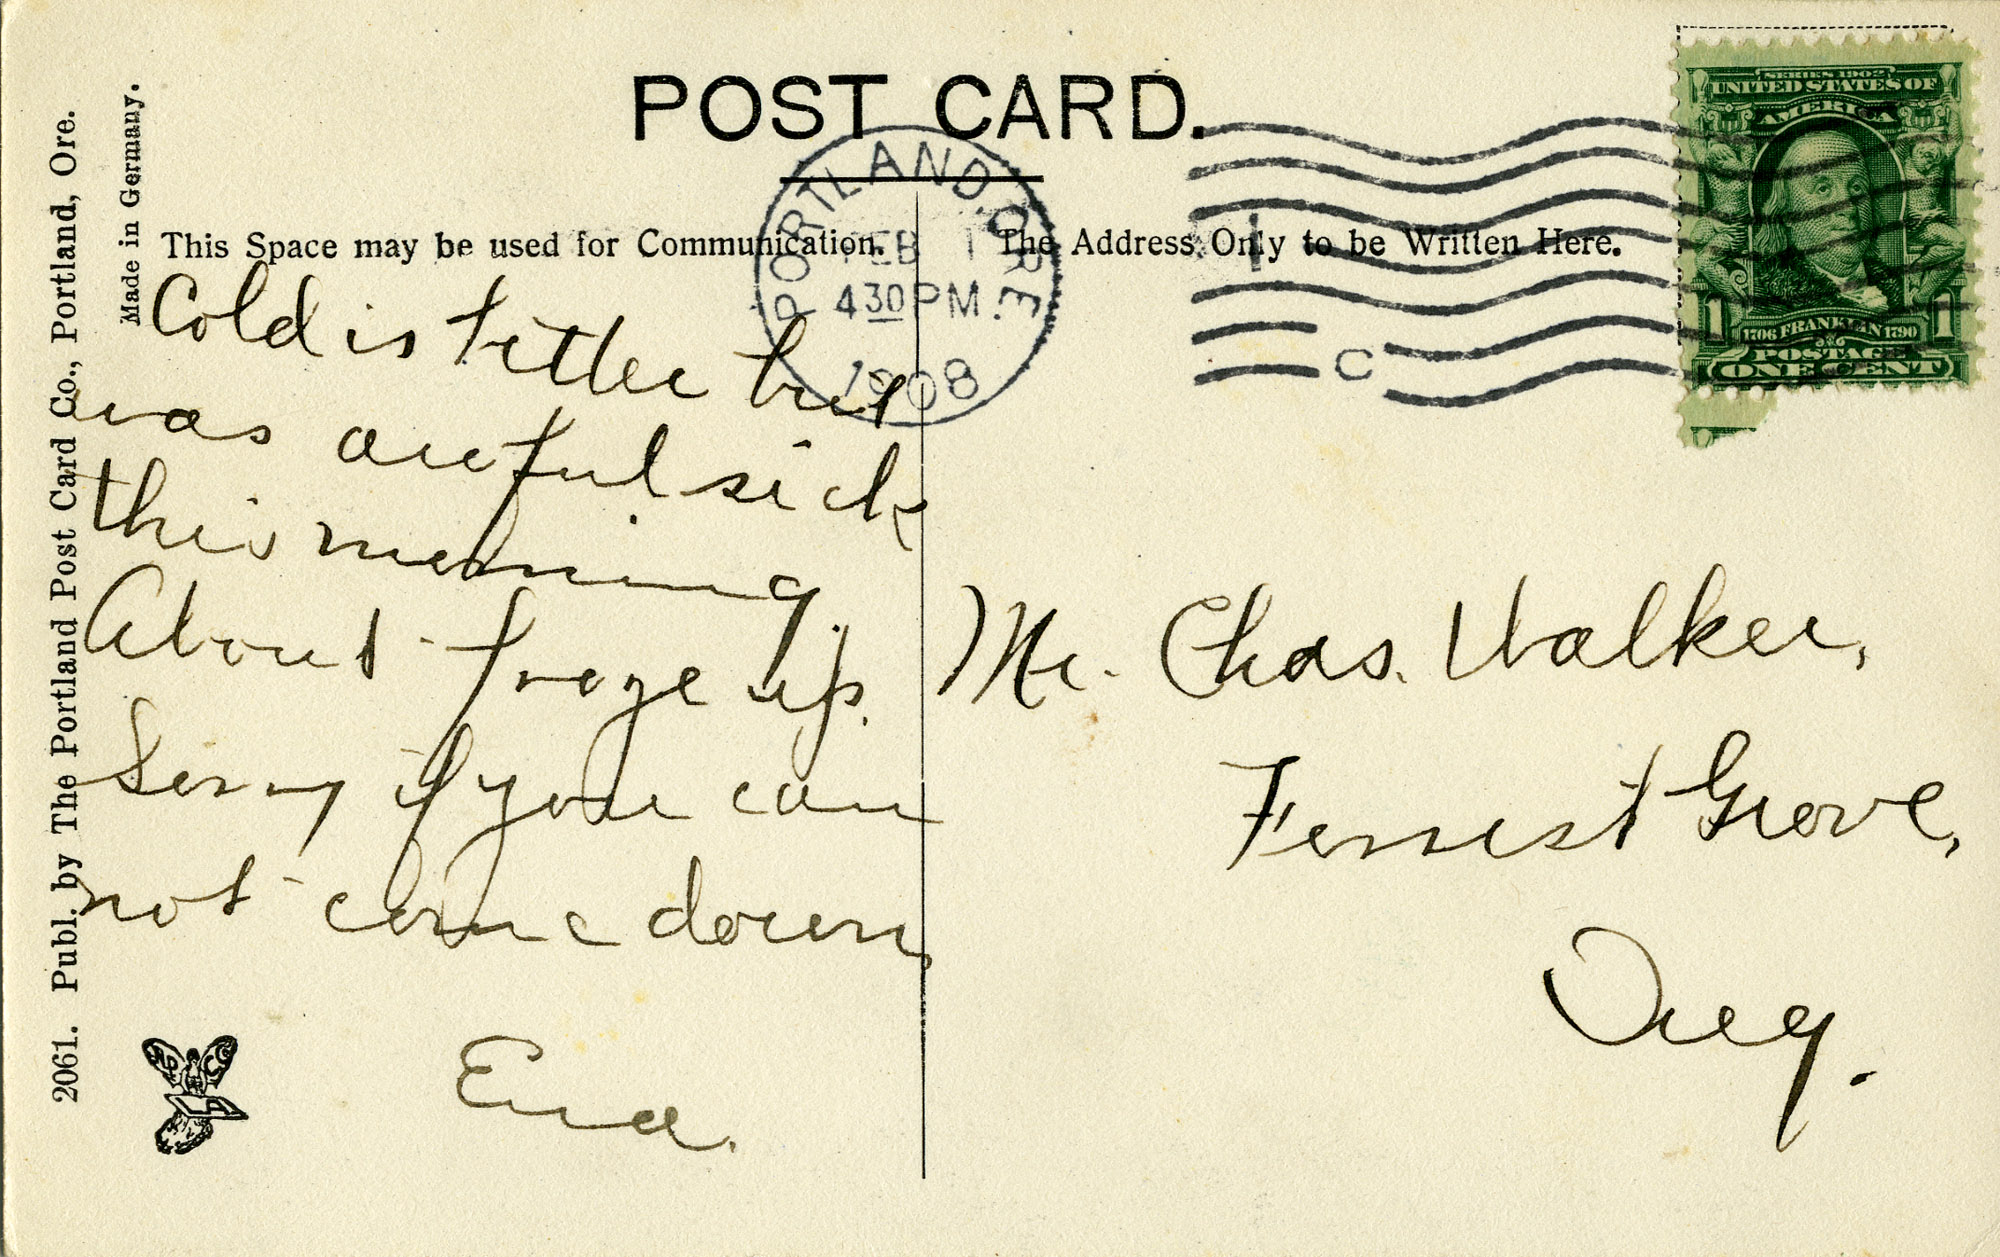 POST CARD.
This Space may be used for Communication.
The Address Only to be Written Here.
PORTLAND, ORE.
FEB 1
4 30 PM
1908
C
SERIES 1902
UNITED STATES OF
AMERICA
1706 FRANKLIN 1790
1 1
POSTAGE
ONE CENT
2061. Publ. by The Portland Post Card Co., Portland, Ore.
Made in Germany.
Cold is better but
was awful sick
this morning.
About froze up.
Sorry if you can
not come down,
Eva.
Mr. Chas. Walker,
Forrest Grove,
Oreg.